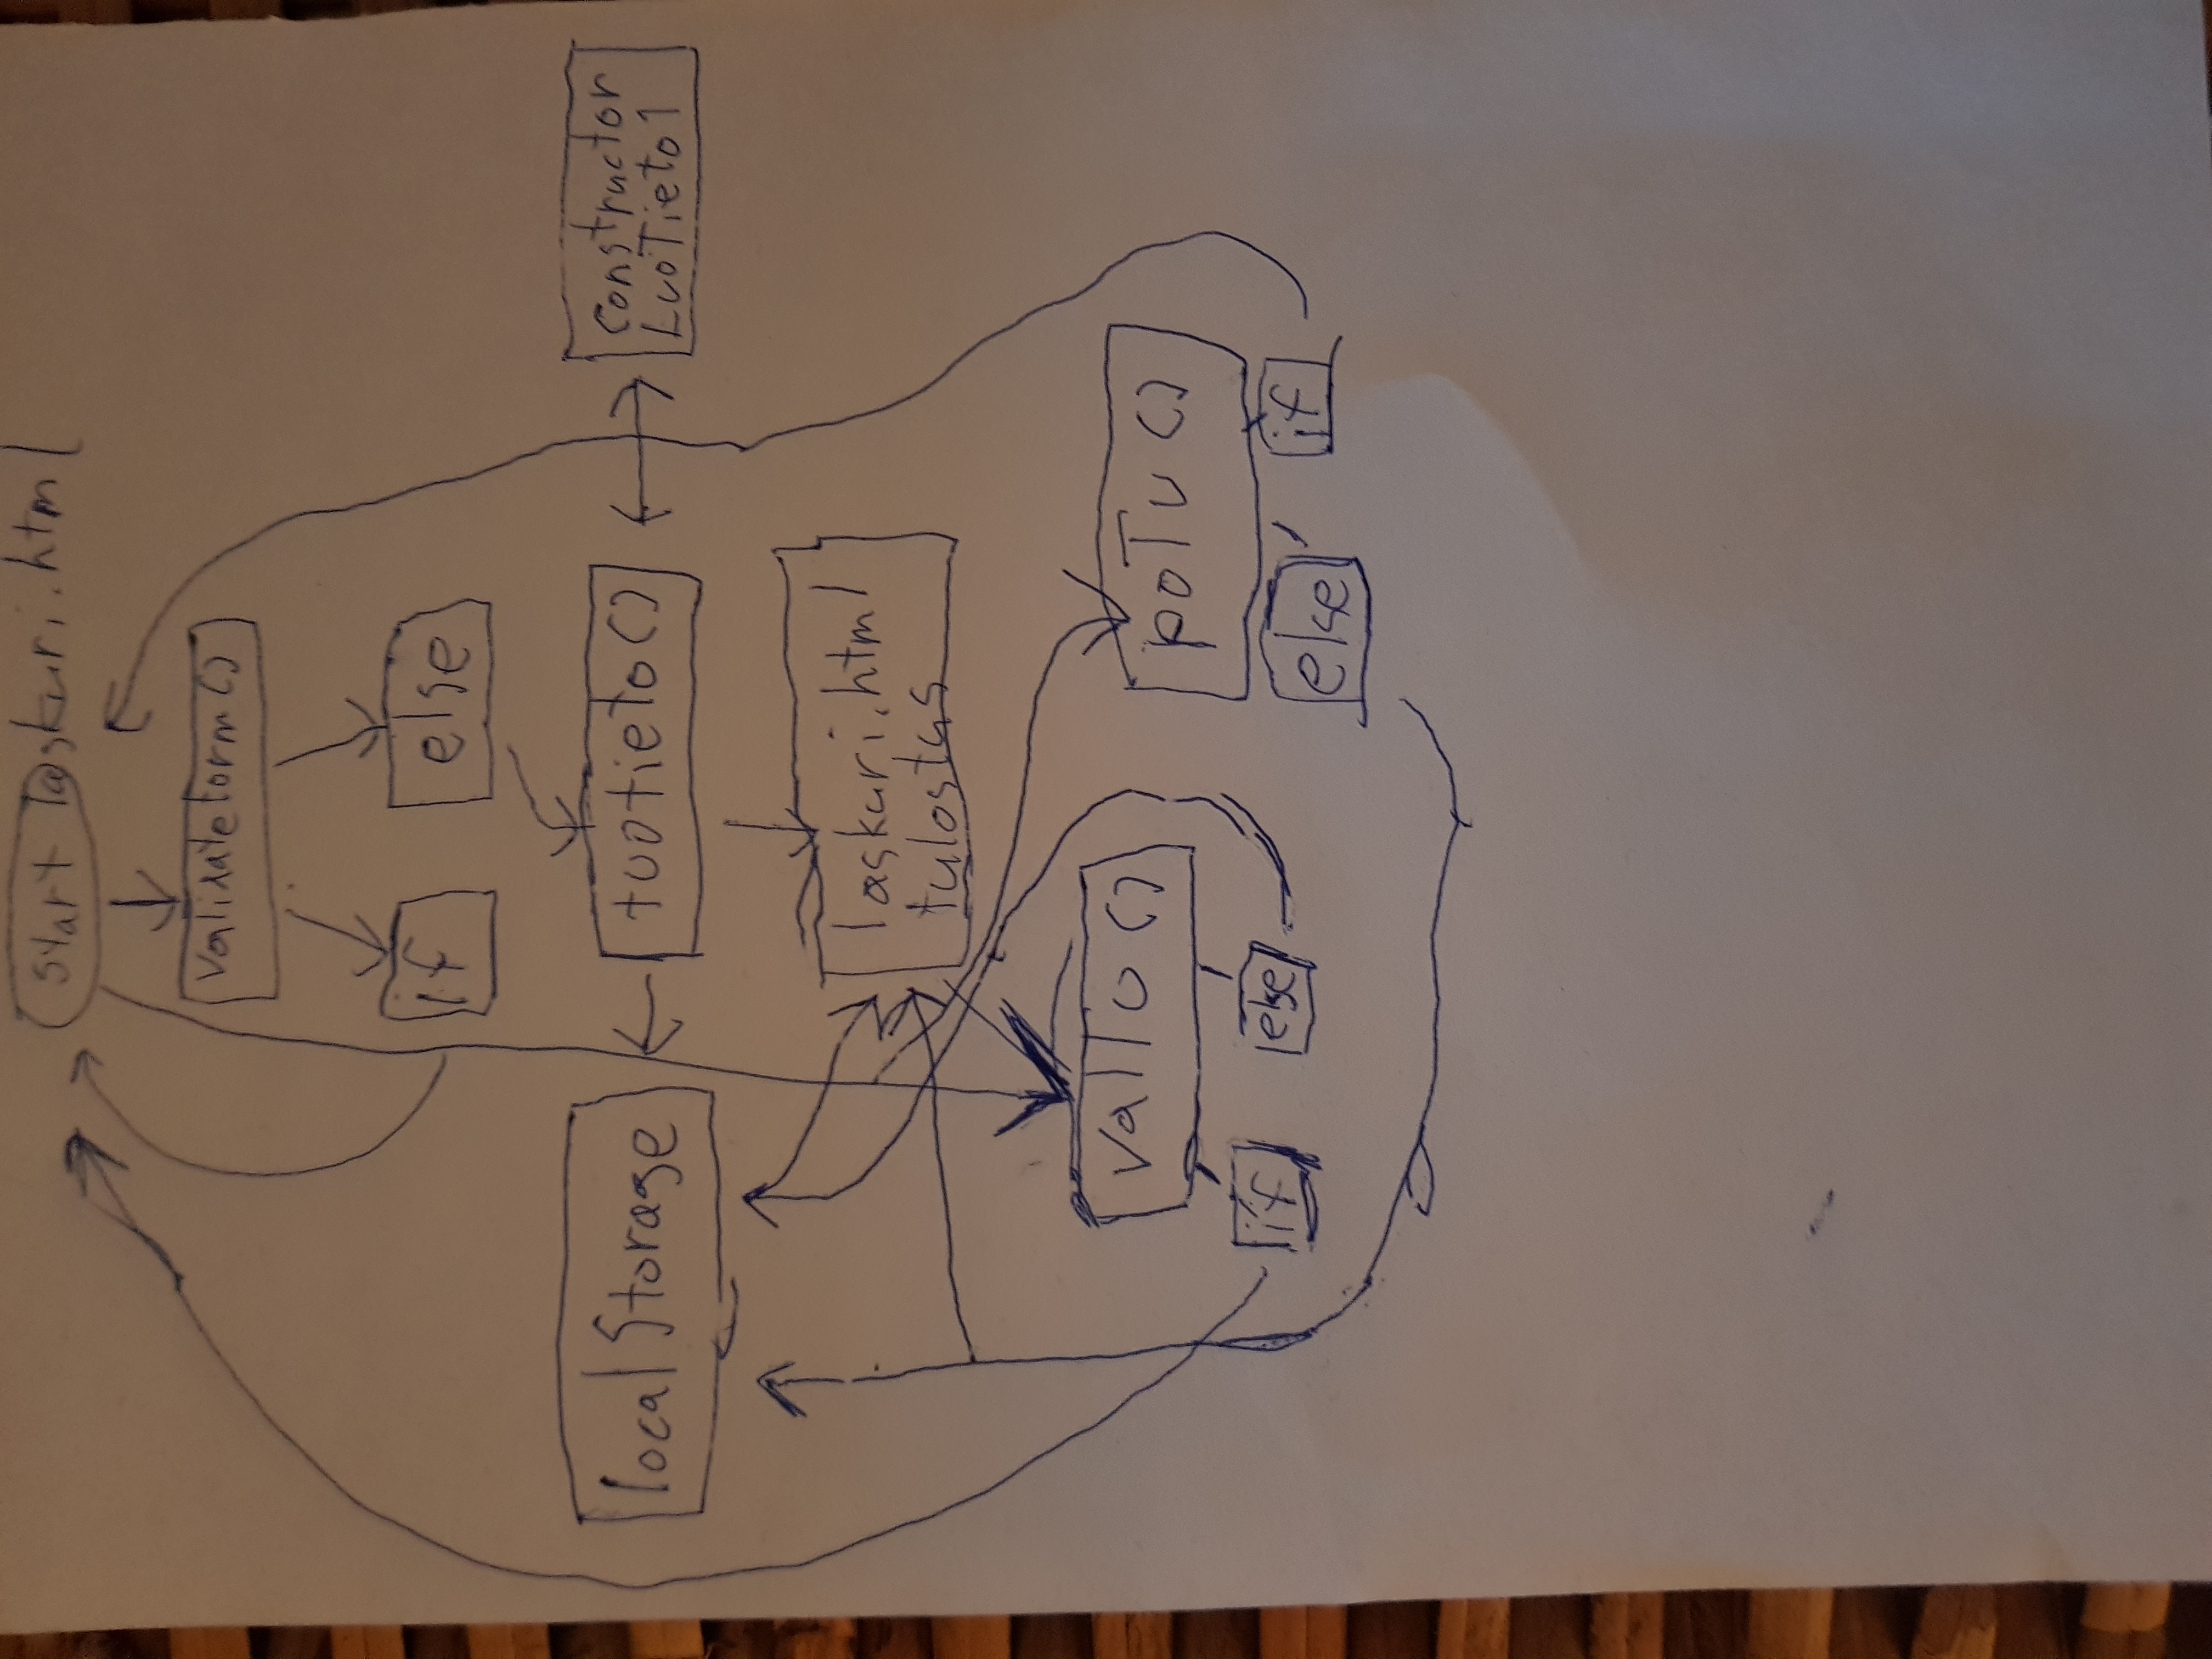 start laskuri.html
validateform()
if
else
localStorage
tuotieto()
constructor
LuoTieto1
laskuri.html
tulostus
valTu()
poTu()
if
else
else
if